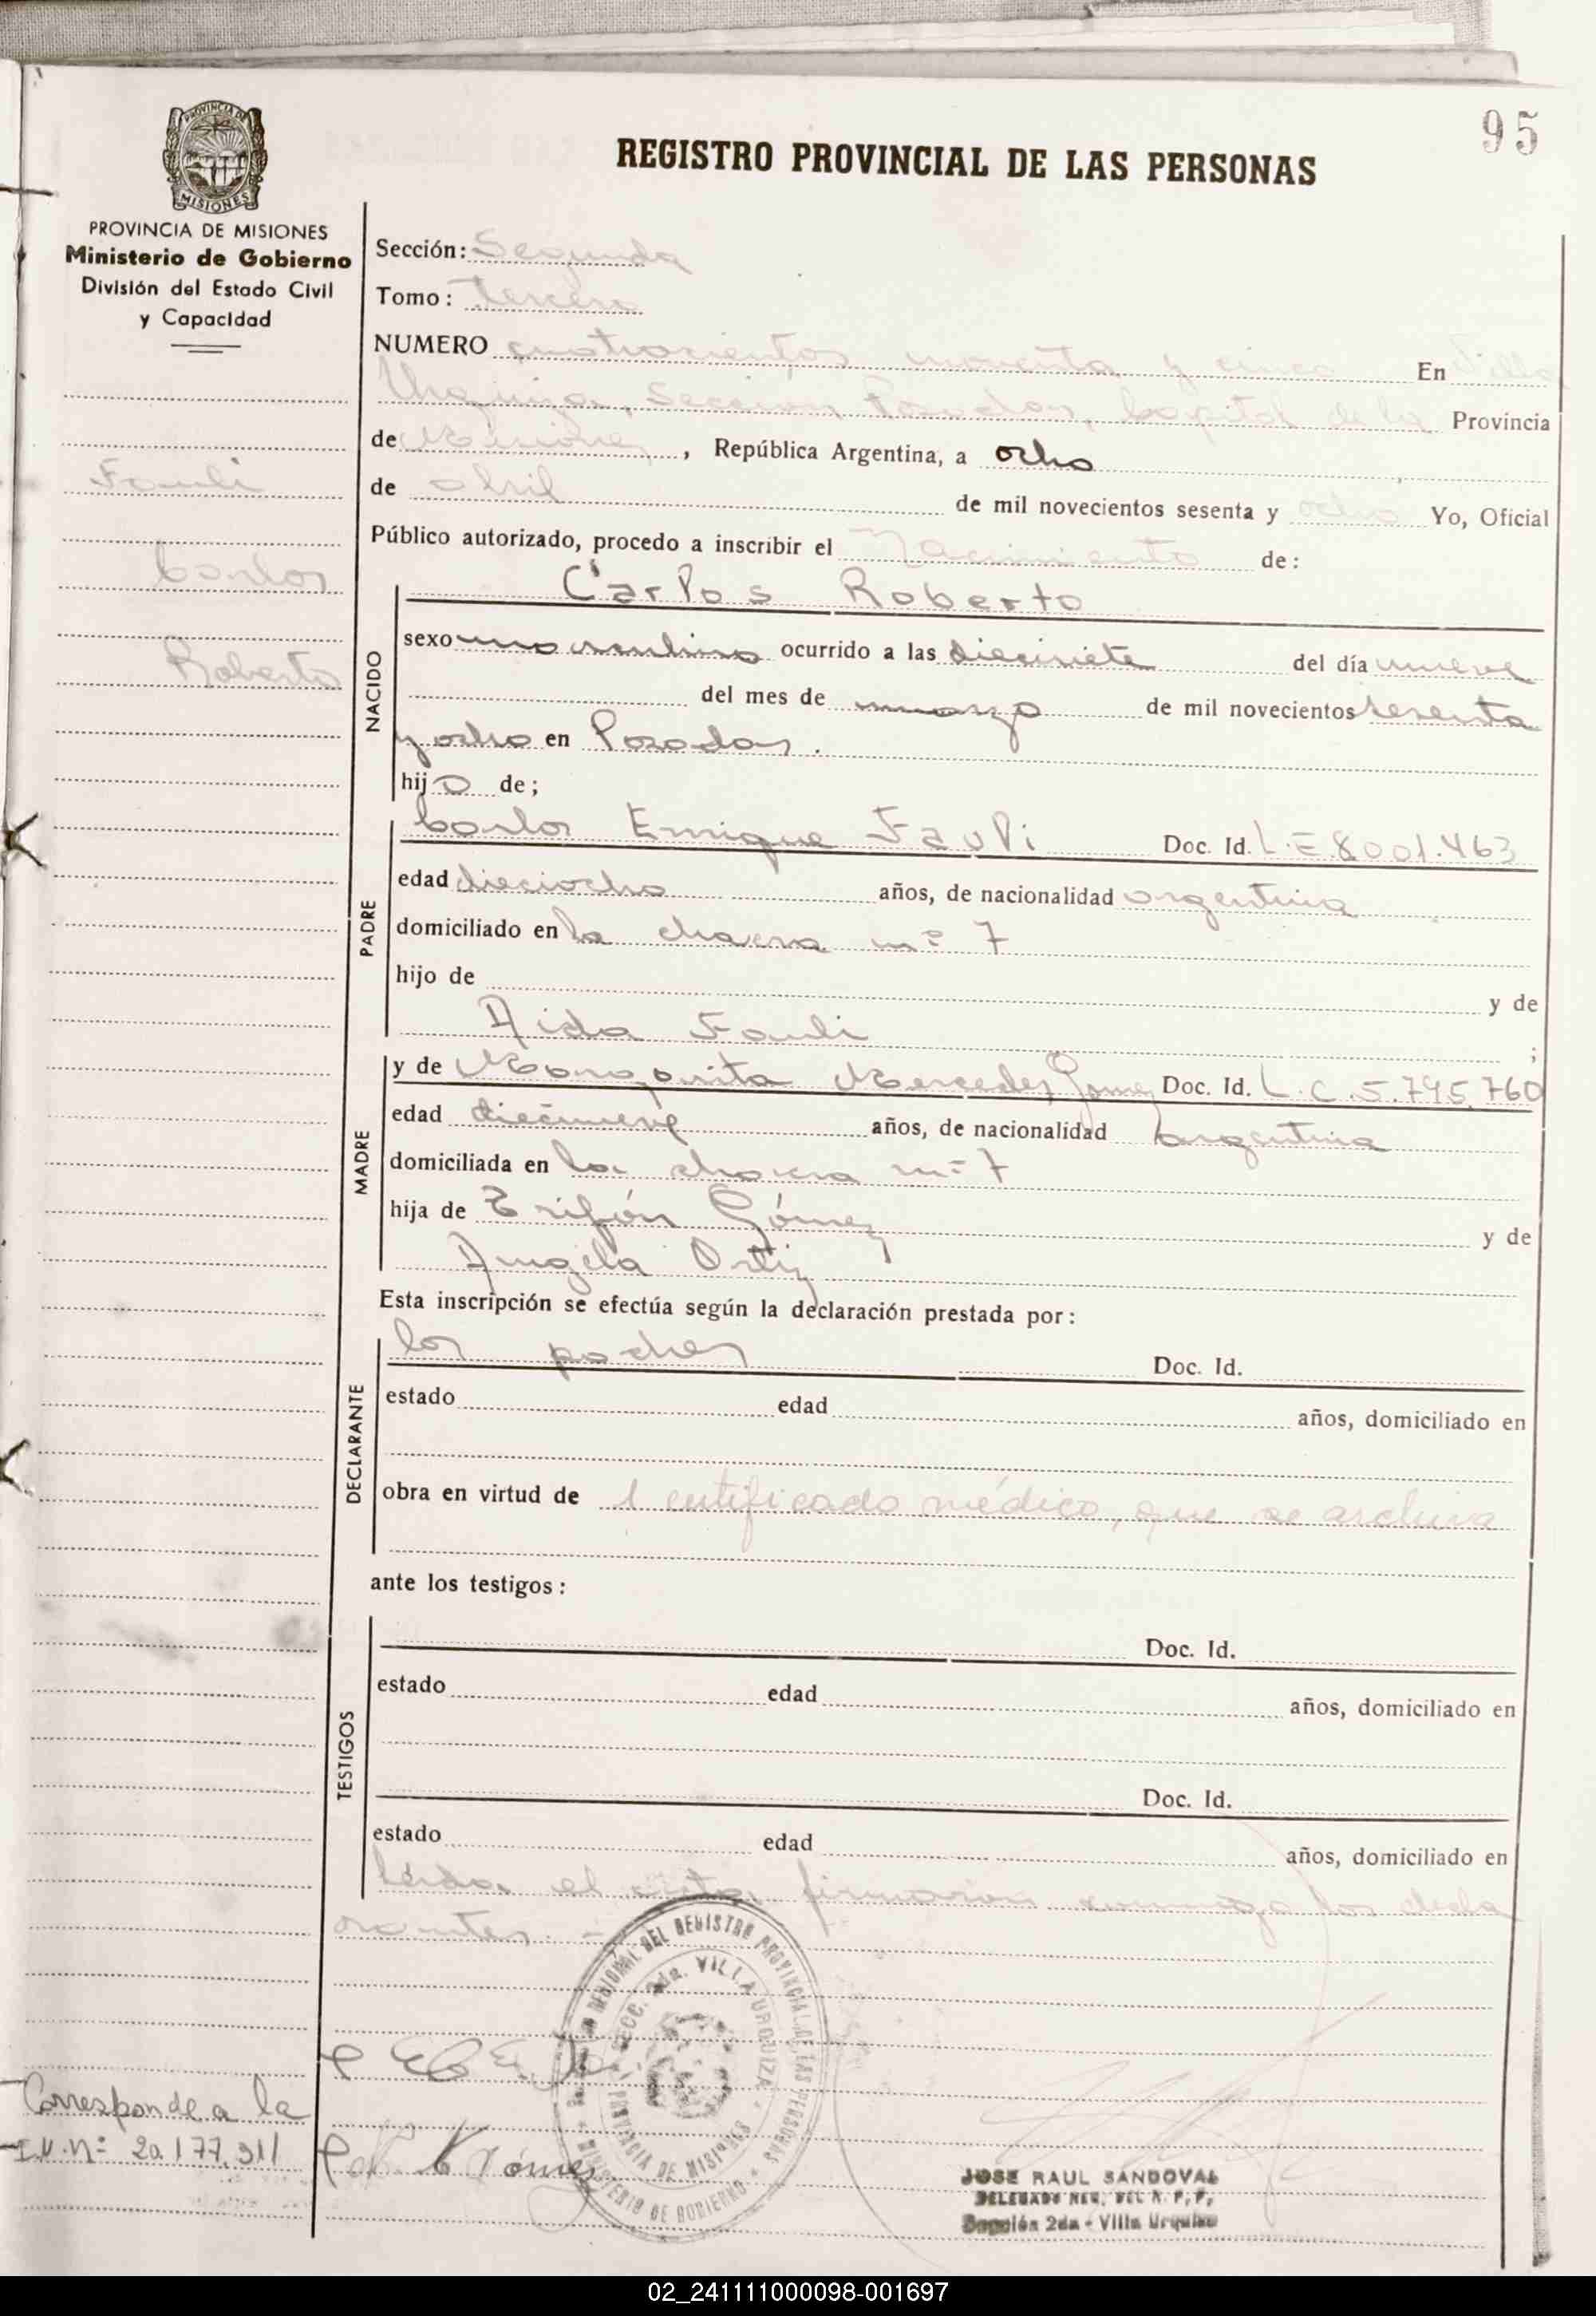 95
REGISTRO PROVINCIAL DE LAS PERSONAS
PROVINCIA DE MISIONES
Ministerio de Gobierno
División del Estado Civil
y Capacidad
Fauli
Carlos
Roberto
Sección: Segunda
Tomo: tercero
NUMERO cuatrocientos noventa y cinco En Villa
Urquiza, Sección Posadas, Capital de la Provincia
de Misiones, República Argentina, a ocho
de abril de mil novecientos sesenta y ocho Yo, Oficial
Público autorizado, procedo a inscribir el Nacimiento de:
NACIDO
Carlos Roberto
sexo masculino ocurrido a las diecisiete del día nueve
del mes de marzo de mil novecientos sesenta
y ocho en Posadas.
hijo de;
PADRE
Carlos Enrique Fauli Doc. Id. L.E 8001.463
edad dieciocho años, de nacionalidad argentina
domiciliado en la chacra nº 7
hijo de y de
Aida Fauli ;
MADRE
y de Margarita Mercedes Gomez Doc. Id. L.C.5.795.760
edad diecinueve años, de nacionalidad argentina
domiciliada en la chacra nº 7
hija de Trifón Gómez y de
Angela Ortiz
Esta inscripción se efectúa según la declaración prestada por:
DECLARANTE
los padres Doc. Id.
estado edad años, domiciliado en
obra en virtud de 1 certificado médico, que se archiva
ante los testigos:
TESTIGOS
Doc. Id.
estado edad años, domiciliado en
Doc. Id.
estado edad años, domiciliado en
Leída el acta, firmaron conmigo los decla
rantes.-
REGIONAL DEL REGISTRO PROVINCIAL DE LAS PERSONAS
SECC. 2da. VILLA URQUIZA
PROVINCIA DE MISIONES
MINISTERIO DE GOBIERNO
Corresponde a la
I.N.Nº 20.177.311
Gómez
JOSE RAUL SANDOVAL
DELEGADO REG. DEL R.P.P.
Sección 2da - Villa Urquiza
02_241111000098-001697